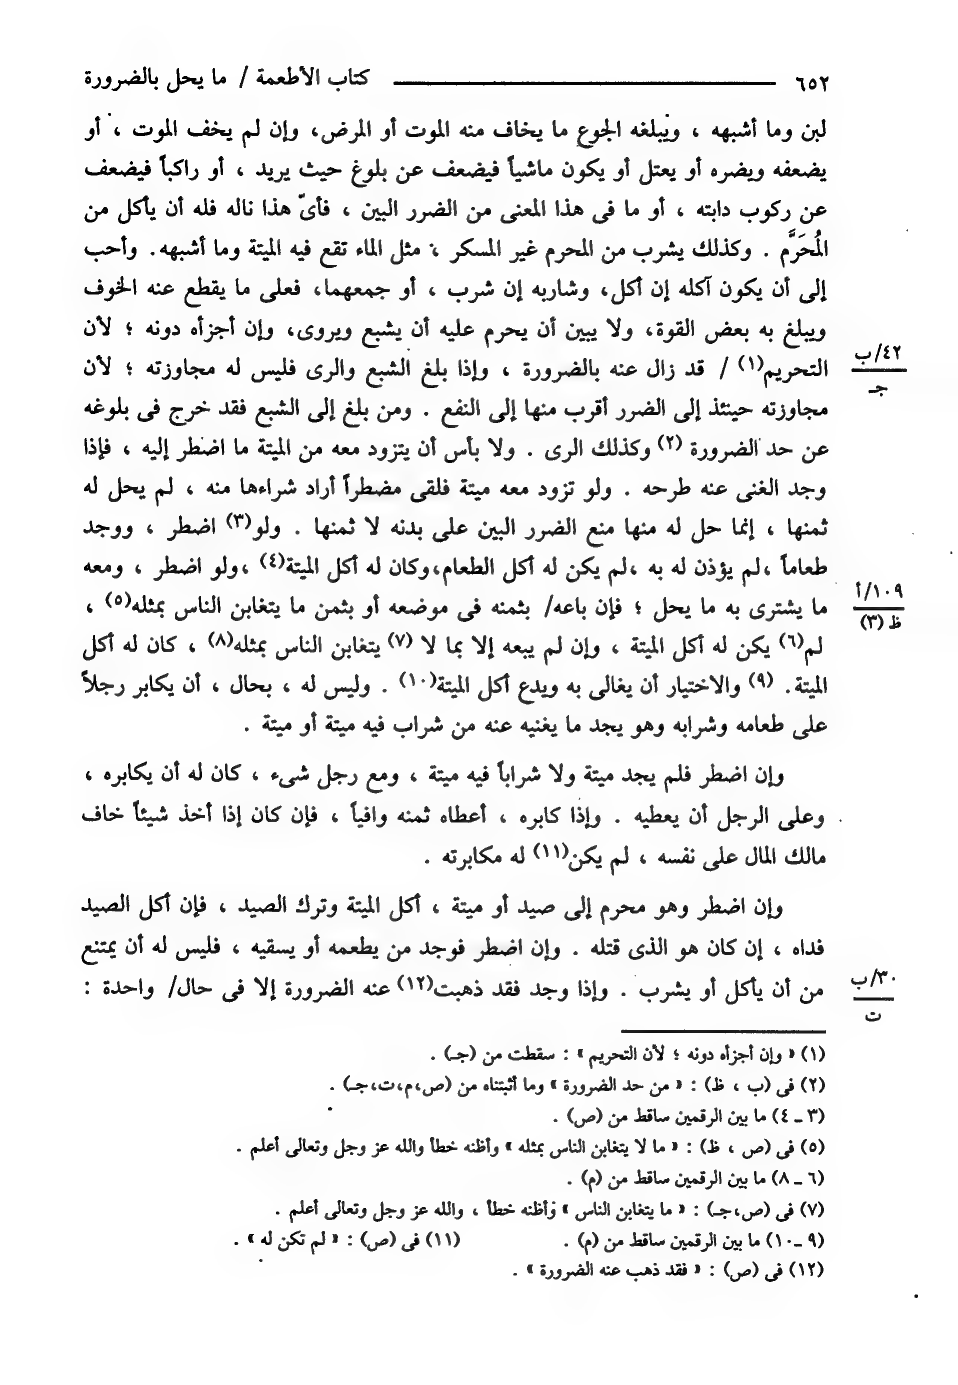 ٦٥٢ كتاب الأطعمة / ما يحل بالضرورة
لبن وما أشبهه ، ويبلغه الجوع ما يخاف منه الموت أو المرض، وإن لم يخف الموت ، أو
يضعفه ويضره أو يعتل أو يكون ماشياً فيضعف عن بلوغ حيث يريد ، أو راكباً فيضعف
عن ركوب دابته ، أو ما فى هذا المعنى من الضرر البين ، فأىّ هذا ناله فله أن يأكل من
المُحَرَّم . وكذلك يشرب من المحرم غير المسكر ، مثل الماء تقع فيه الميتة وما أشبهه. وأحب
إلى أن يكون آكله إن أكل، وشاربه إن شرب ، أو جمعهما، فعلى ما يقطع عنه الخوف
ويبلغ به بعض القوة، ولا يبين أن يحرم عليه أن يشبع ويروى، وإن أجزأه دونه ؛ لأن
التحريم(١) / قد زال عنه بالضرورة ، وإذا بلغ الشبع والرى فليس له مجاوزته ؛ لأن
٤٢/ب
جـ
مجاوزته حينئذ إلى الضرر أقرب منها إلى النفع . ومن بلغ إلى الشبع فقد خرج فى بلوغه
عن حد الضرورة (٢) وكذلك الرى . ولا بأس أن يتزود معه من الميتة ما اضطر إليه ، فإذا
وجد الغنى عنه طرحه . ولو تزود معه ميتة فلقى مضطراً أراد شراءها منه ، لم يحل له
ثمنها ، إنما حل له منها منع الضرر البين على بدنه لا ثمنها . ولو(٣) اضطر ، ووجد
طعاماً ،لم يؤذن له به ،لم يكن له أكل الطعام،وكان له أكل الميتة(٤) ،ولو اضطر ، ومعه
ما يشترى به ما يحل ؛ فإن باعه/ بثمنه فى موضعه أو بثمن ما يتغابن الناس بمثله(٥) ،
١٠٩/أ
ظ (٣)
لم(٦) يكن له أكل الميتة ، وإن لم يبعه إلا بما لا (٧) يتغابن الناس بمثله(٨) ، كان له أكل
الميتة. (٩) والاختيار أن يغالى به ويدع أكل الميتة(١٠) . وليس له ، بحال ، أن يكابر رجلاً
على طعامه وشرابه وهو يجد ما يغنيه عنه من شراب فيه ميتة أو ميتة .
وإن اضطر فلم يجد ميتة ولا شراباً فيه ميتة ، ومع رجل شىء ، كان له أن يكابره ،
وعلى الرجل أن يعطيه . وإذا كابره ، أعطاه ثمنه وافياً ، فإن كان إذا أخذ شيئاً خاف
مالك المال على نفسه ، لم يكن(١١) له مكابرته .
وإن اضطر وهو محرم إلى صيد أو ميتة ، أكل الميتة وترك الصيد ، فإن أكل الصيد
فداه ، إن كان هو الذى قتله . وإن اضطر فوجد من يطعمه أو يسقيه ، فليس له أن يمتنع
من أن يأكل أو يشرب . وإذا وجد فقد ذهبت(١٢) عنه الضرورة إلا فى حال/ واحدة :
٣٠/ب
ت
(١) « وإن أجزأه دونه ؛ لأن التحريم » : سقطت من (جـ) .
(٢) فى (ب ، ظ) : « من حد الضرورة » وما أثبتناه من (ص،م،ت،جـ) .
(٣ ــ ٤) ما بين الرقمين ساقط من (ص) .
(٥) فى (ص ، ظ) : « ما لا يتغابن الناس بمثله » وأظنه خطأ والله عز وجل وتعالى أعلم .
(٦ ــ ٨) ما بين الرقمين ساقط من (م) .
(٧) فى (ص،جـ) : « ما يتغابن الناس » وأظنه خطأ ، والله عز وجل وتعالى أعلم .
(٩ ــ١٠) ما بين الرقمين ساقط من (م) . (١١) فى (ص) : « لم تكن له » .
(١٢) فى (ص) : « فقد ذهب عنه الضرورة » .